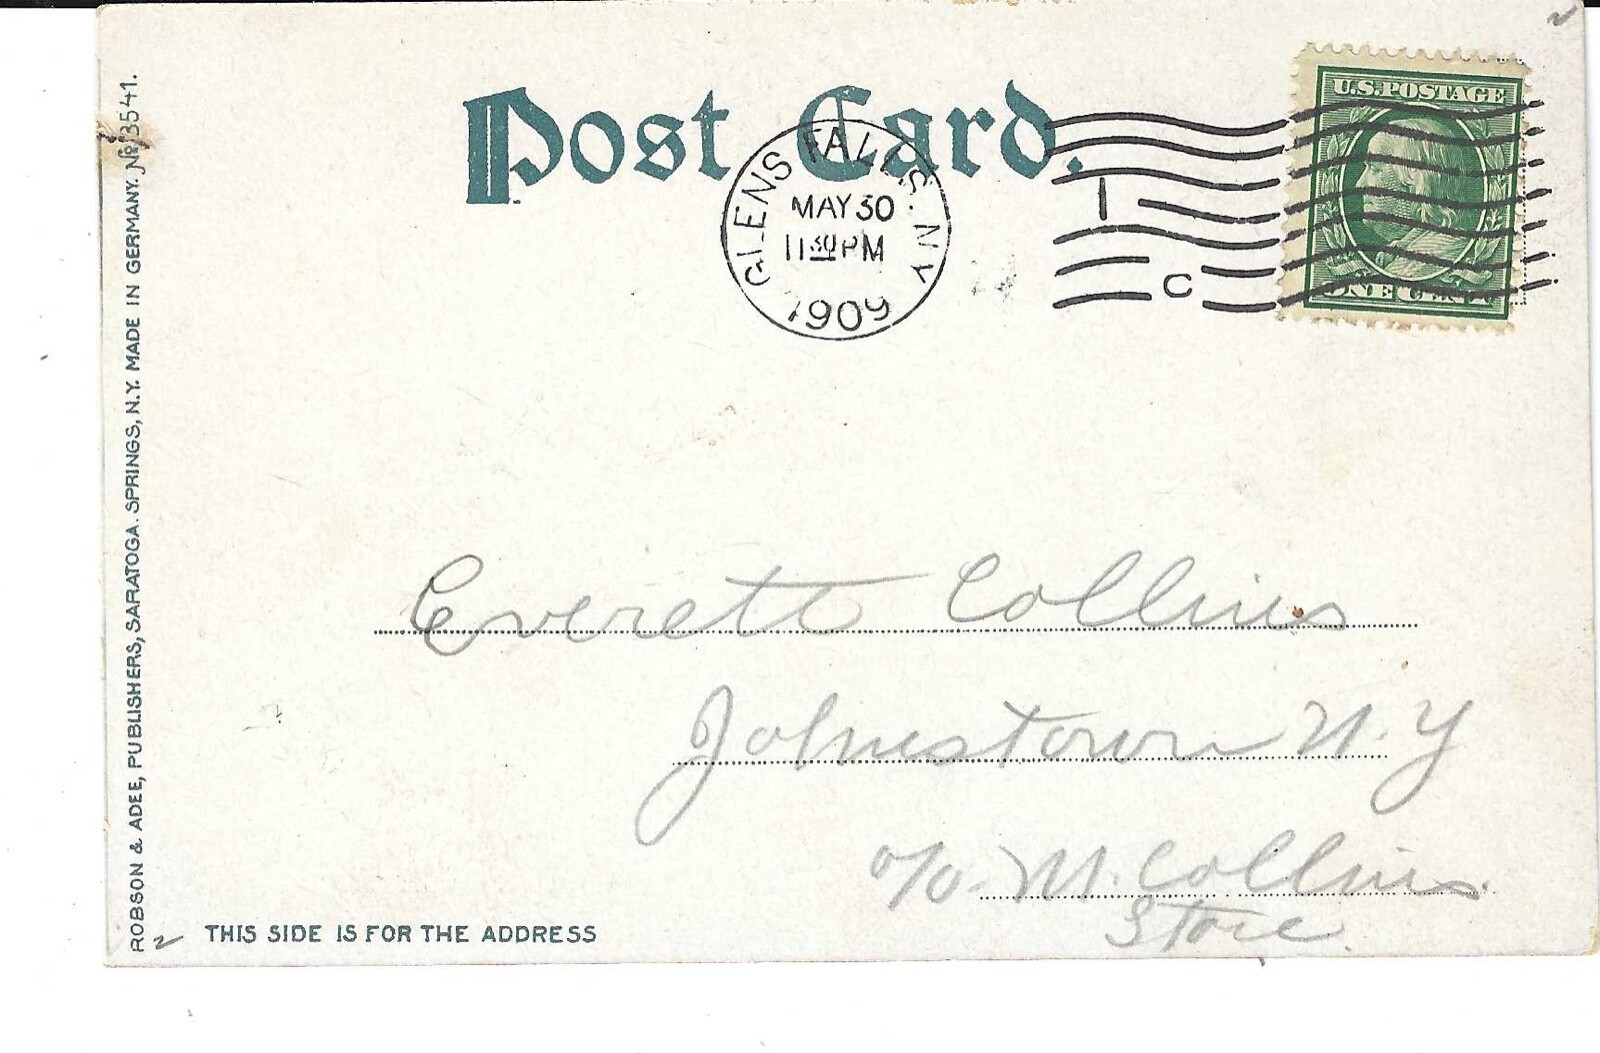 Post Card.
U.S. POSTAGE
ONE CENT
GLENS FALLS. N.Y.
MAY 30
11 30 PM
1909
1
C
Everett Collins
Johnstown N.Y
c/o - M. Collins.
Store.
THIS SIDE IS FOR THE ADDRESS
ROBSON & ADEE, PUBLISHERS, SARATOGA. SPRINGS, N.Y. MADE IN GERMANY. No 13541.